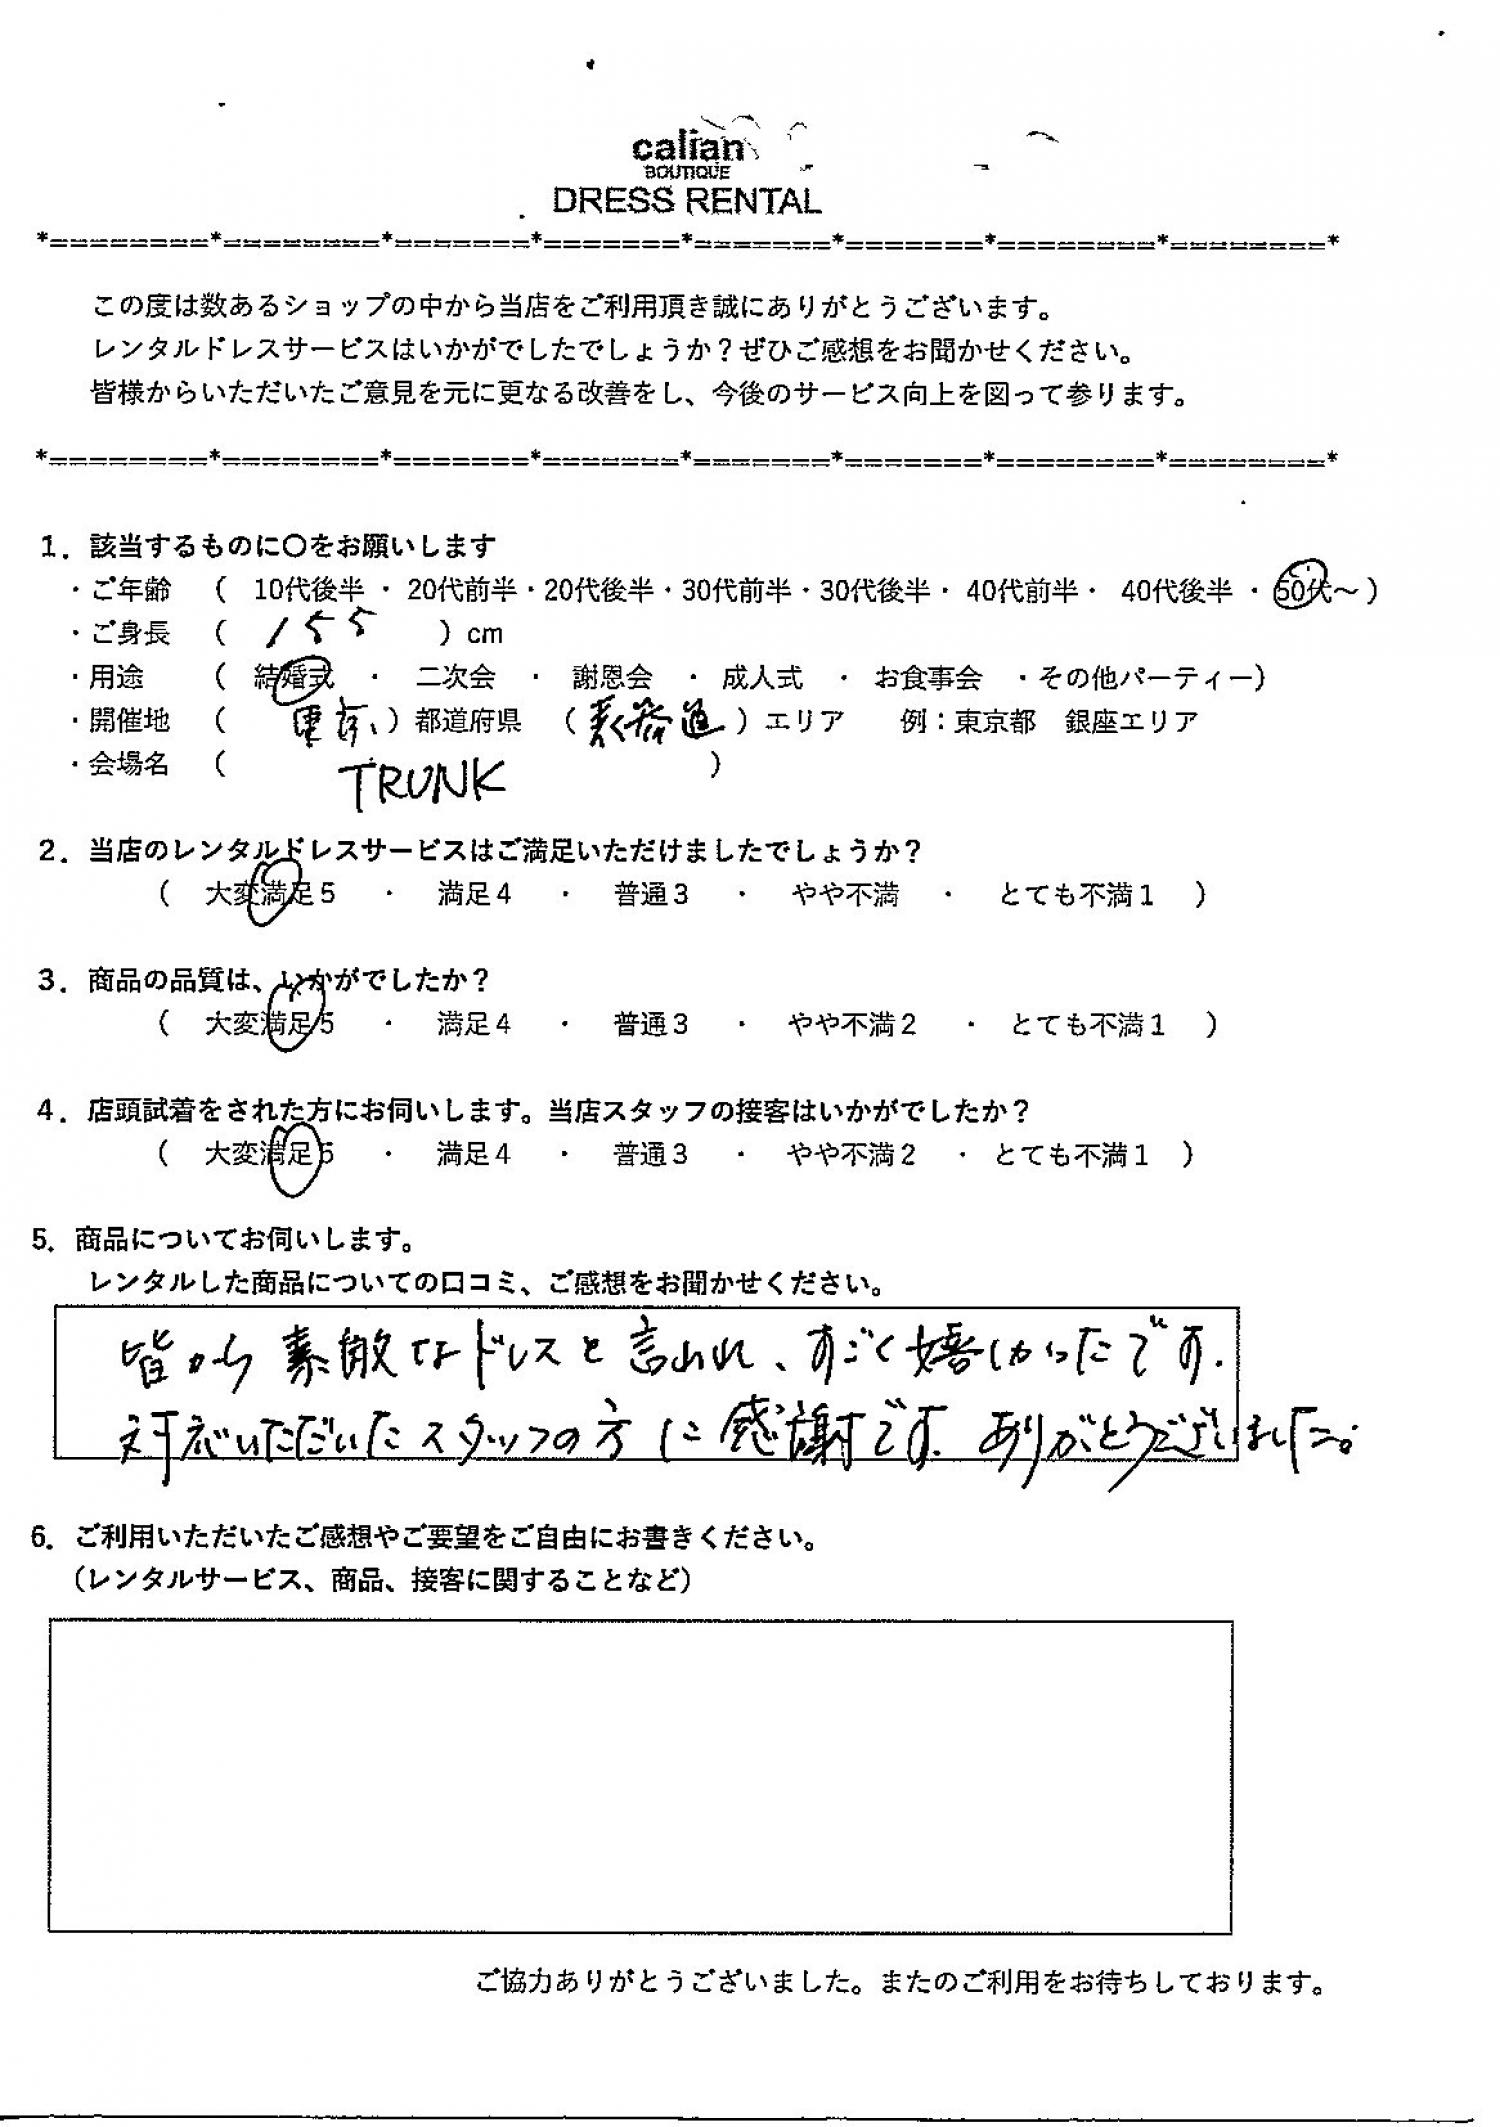 calian
BOUTIQUE
DRESS RENTAL
*========*========*=======*=======*=======*=======*========*========*
この度は数あるショップの中から当店をご利用頂き誠にありがとうございます。
レンタルドレスサービスはいかがでしたでしょうか？ぜひご感想をお聞かせください。
皆様からいただいたご意見を元に更なる改善をし、今後のサービス向上を図って参ります。
*========*========*=======*=======*=======*=======*========*========*
1．該当するものに〇をお願いします
・ご年齢 （ 10代後半 ・ 20代前半・20代後半・30代前半・30代後半・ 40代前半・ 40代後半 ・ 50代～ ）
・ご身長 （ 155 ）cm
・用途 （ 結婚式 ・ 二次会 ・ 謝恩会 ・ 成人式 ・ お食事会 ・その他パーティー）
・開催地 （ 東京 ）都道府県 （ 表参道 ）エリア 例：東京都 銀座エリア
・会場名 （ TRUNK ）
2．当店のレンタルドレスサービスはご満足いただけましたでしょうか？
（ 大変満足５ ・ 満足４ ・ 普通３ ・ やや不満 ・ とても不満１ ）
3．商品の品質は、いかがでしたか？
（ 大変満足５ ・ 満足４ ・ 普通３ ・ やや不満２ ・ とても不満１ ）
4．店頭試着をされた方にお伺いします。当店スタッフの接客はいかがでしたか？
（ 大変満足５ ・ 満足４ ・ 普通３ ・ やや不満２ ・ とても不満１ ）
5．商品についてお伺いします。
レンタルした商品についての口コミ、ご感想をお聞かせください。
皆から素敵なドレスと言われ、すごく嬉しかったです.
対応いただいたスタッフの方に感謝です. ありがとうございました。
6．ご利用いただいたご感想やご要望をご自由にお書きください。
（レンタルサービス、商品、接客に関することなど）
ご協力ありがとうございました。またのご利用をお待ちしております。